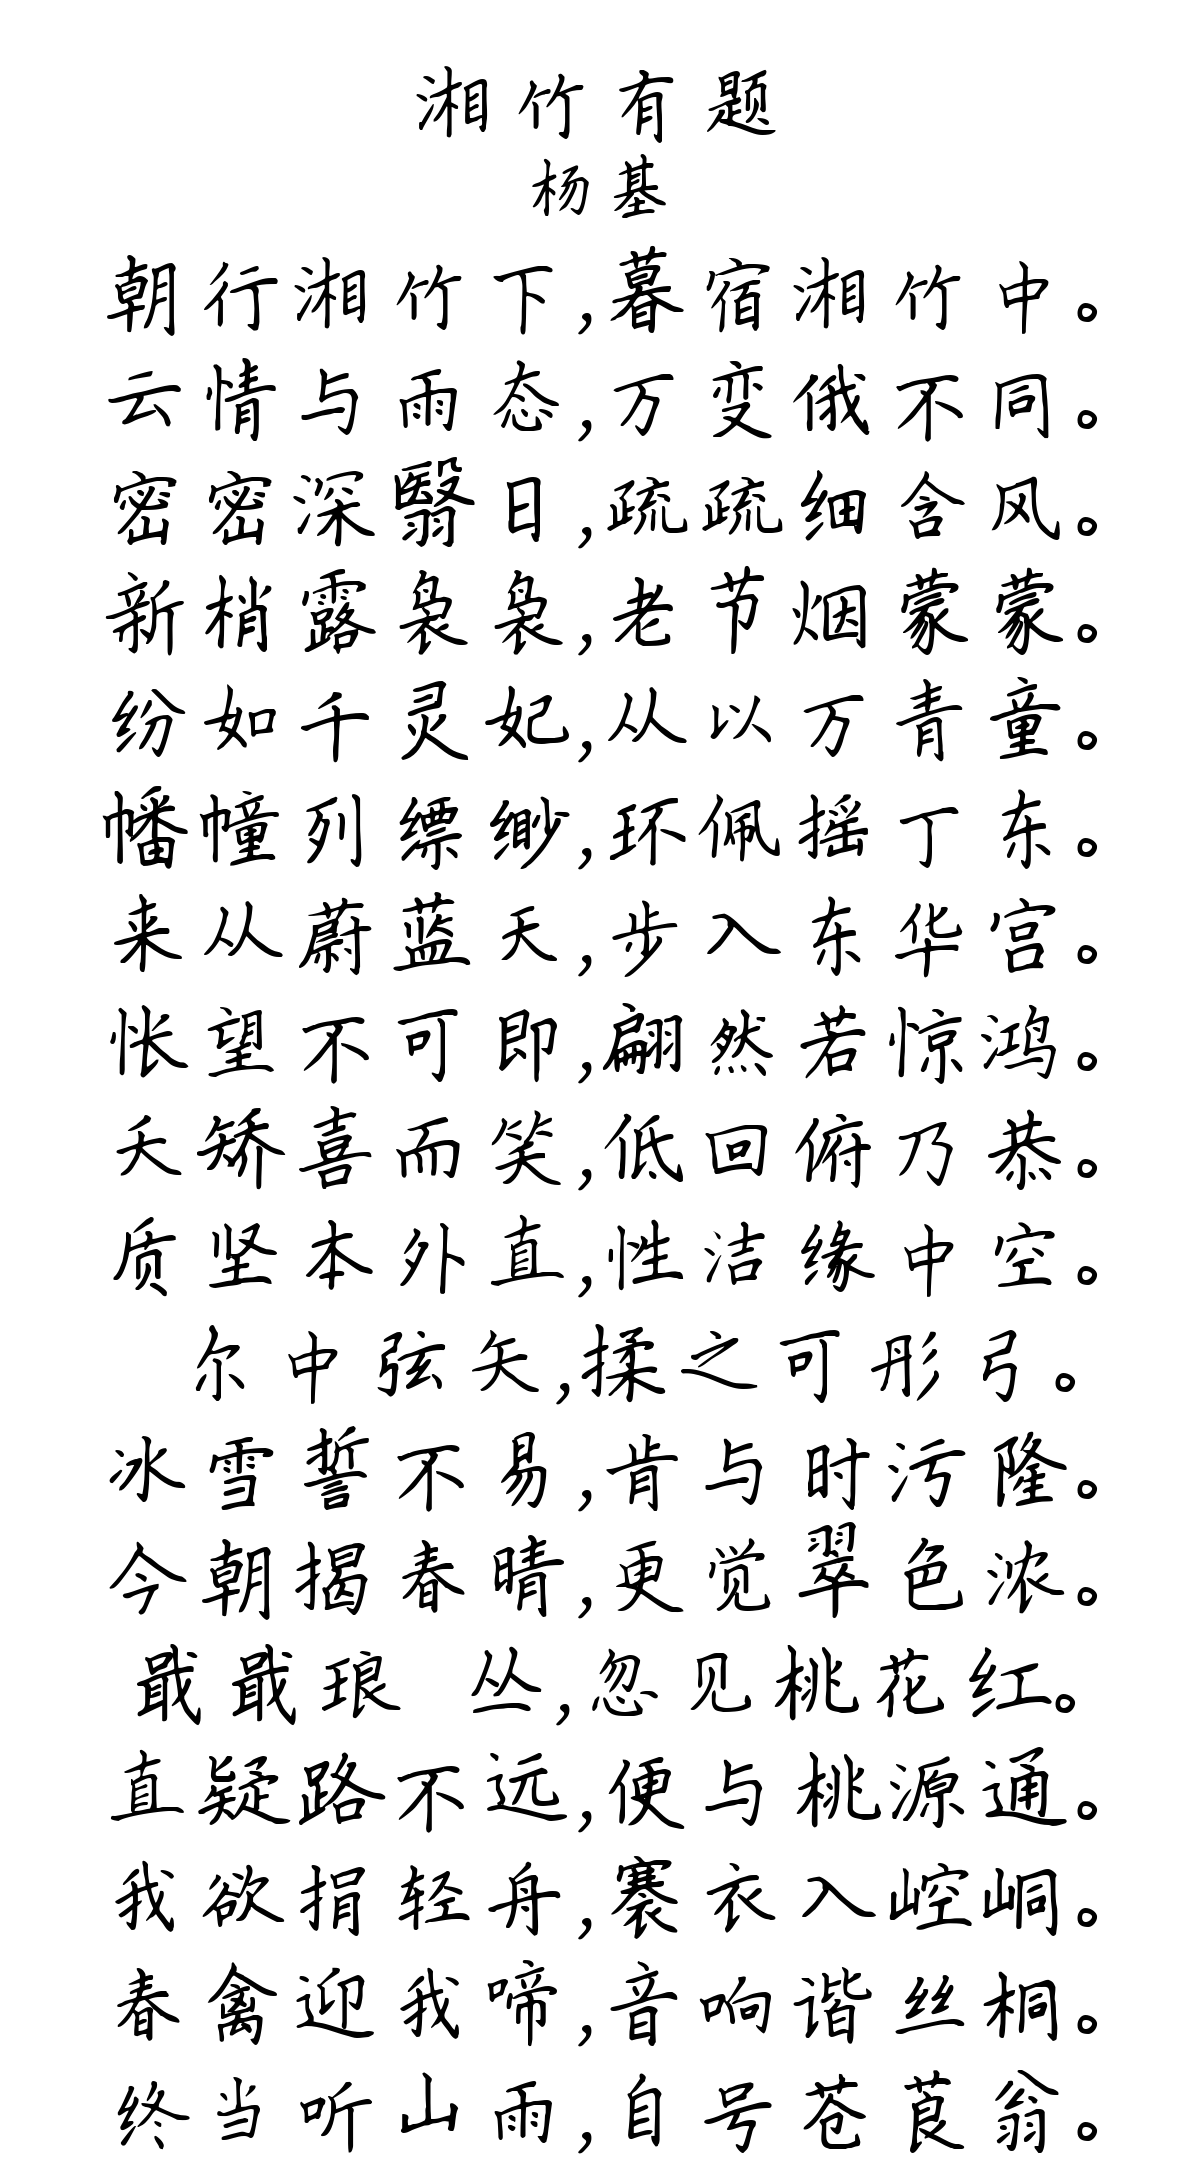 湘竹有题
杨基
朝行湘竹下,暮宿湘竹中。
云情与雨态,万变俄不同。
密密深翳日,疏疏细含风。
新梢露袅袅,老节烟蒙蒙。
纷如千灵妃,从以万青童。
幡幢列缥缈,环佩摇丁东。
来从蔚蓝天,步入东华宫。
怅望不可即,翩然若惊鸿。
夭矫喜而笑,低回俯乃恭。
质坚本外直,性洁缘中空。
尔中弦矢,揉之可彤弓。
冰雪誓不易,肯与时污隆。
今朝揭春晴,更觉翠色浓。
戢戢琅 丛,忽见桃花红。
直疑路不远,便与桃源通。
我欲捐轻舟,褰衣入崆峒。
春禽迎我啼,音响谐丝桐。
终当听山雨,自号苍茛翁。